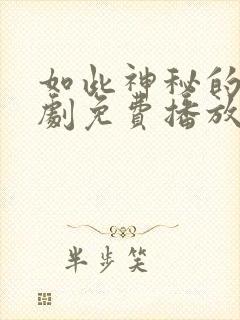 如此神秘的
劇免費播放
半步笑